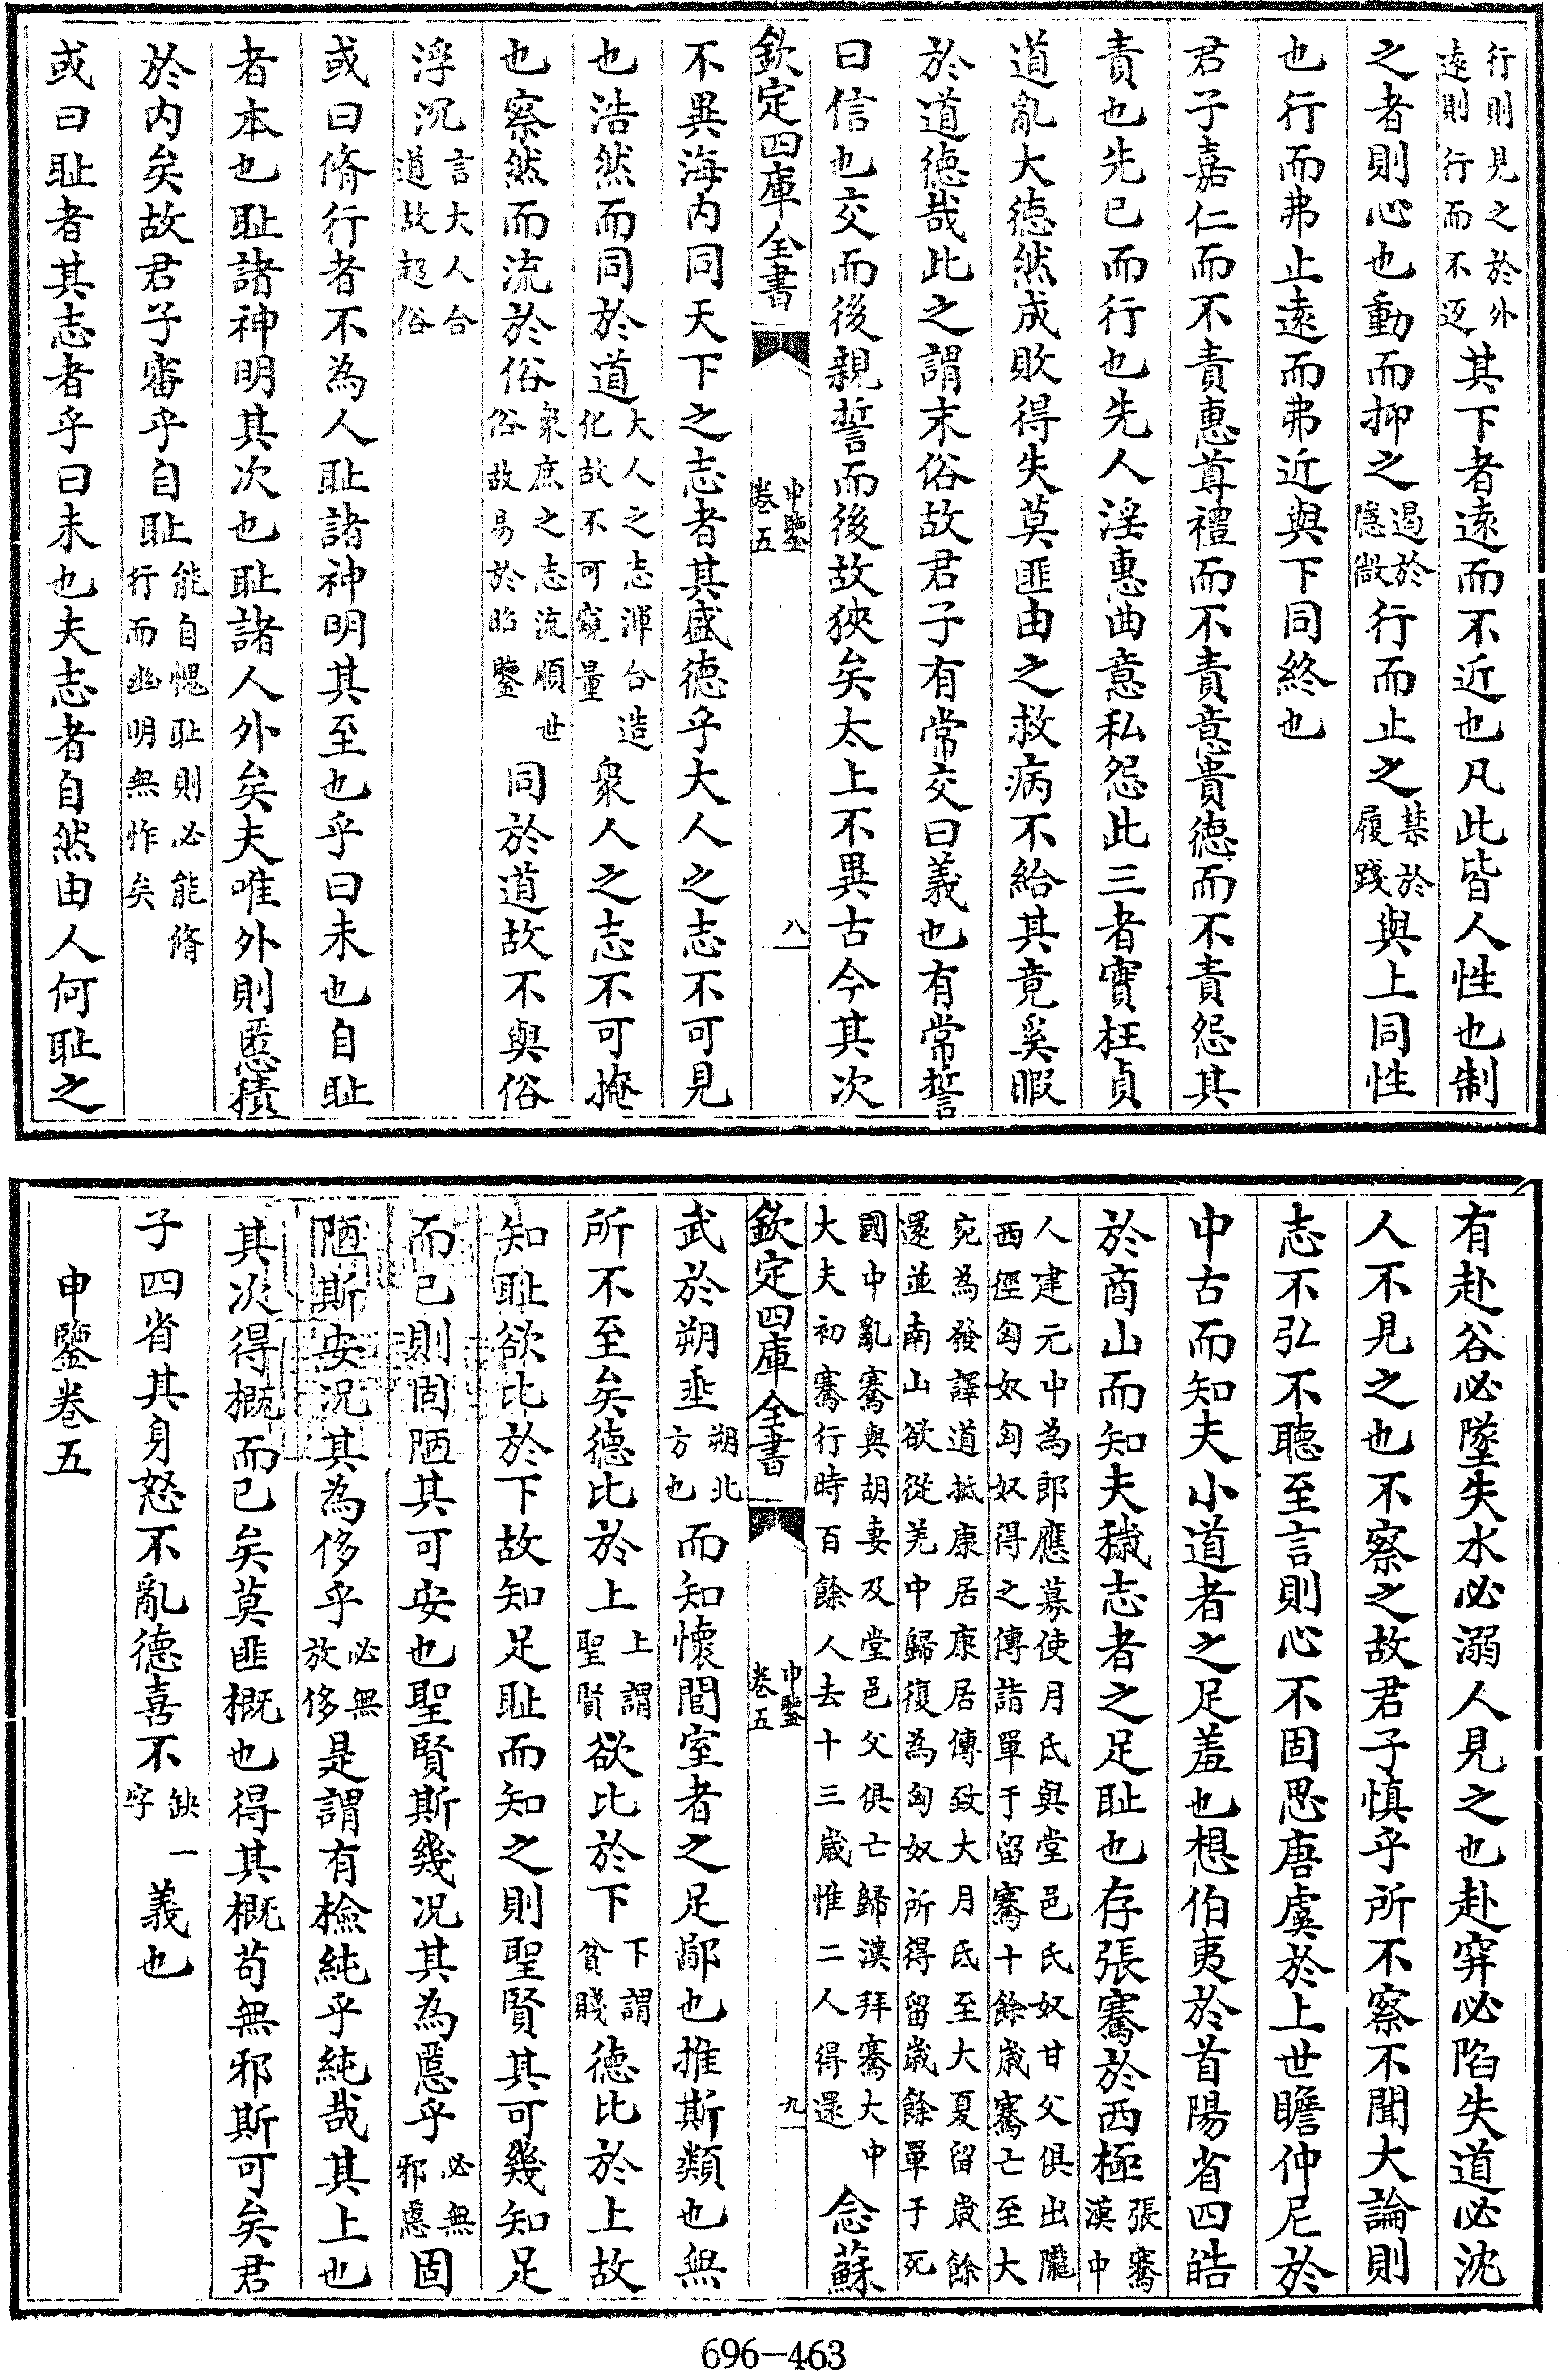 行則見之於外
遠則行而不返其下者遠而不近也凡此皆人性也制
之者則心也動而抑之遏於隱微行而止之禁於履踐與上同性
也行而弗止遠而弗近與下同終也
君子嘉仁而不責惠尊禮而不責意貴徳而不責怨其
責也先已而行也先人淫惠曲意私怨此三者實枉貞
道亂大徳然成敗得失莫匪由之救病不給其竟奚暇
於道徳哉此之謂末俗故君子有常交曰義也有常誓
曰信也交而後親誓而後故狹矣太上不異古今其次
欽定四庫全書
申鑒
卷五
八
不異海内同天下之志者其盛徳乎大人之志不可見
也浩然而同於道大人之志渾合造化故不可窺量衆人之志不可掩
也察然而流於俗衆庶之志流順世俗故易於昭鑒同於道故不與俗
浮沉言大人合道故超俗
或曰脩行者不為人耻諸神明其至也乎曰未也自耻
者本也耻諸神明其次也耻諸人外矣夫唯外則慝積
於内矣故君子審乎自耻能自愧耻則必能脩行而幽明無怍矣
或曰耻者其志者乎曰未也夫志者自然由人何耻之
有赴谷必墜失水必溺人見之也赴穽必陷失道必沈
人不見之也不察之故君子慎乎所不察不聞大論則
志不弘不聽至言則心不固思唐虞於上世瞻仲尼於
中古而知夫小道者之足羞也想伯夷於首陽省四皓
於商山而知夫穢志者之足耻也存張騫於西極張騫漢中
人建元中為郎應募使月氏與堂邑氏奴甘父俱出隴
西徑匈奴匈奴得之傳詣單于留騫十餘嵗騫亡至大
宛為發譯道抵康居康居傳致大月氏至大夏留嵗餘
還並南山欲從羌中歸復為匈奴所得留嵗餘單于死
國中亂騫與胡妻及堂邑父俱亡歸漢拜騫大中
大夫初騫行時百餘人去十三嵗惟二人得還念蘇
欽定四庫全書
申鑒
卷五
九
武於朔垂朔北方也而知懷閭室者之足鄙也推斯類也無
所不至矣徳比於上上謂聖賢欲比於下下謂貧賤徳比於上故
知耻欲比於下故知足耻而知之則聖賢其可幾知足
而已則固陋其可安也聖賢斯幾况其為慝乎必無邪慝固
陋斯安况其為侈乎必無放侈是謂有檢純乎純哉其上也
其次得概而已矣莫匪概也得其概苟無邪斯可矣君
子四省其身怒不亂德喜不缺一字義也
申鑒卷五
696-463